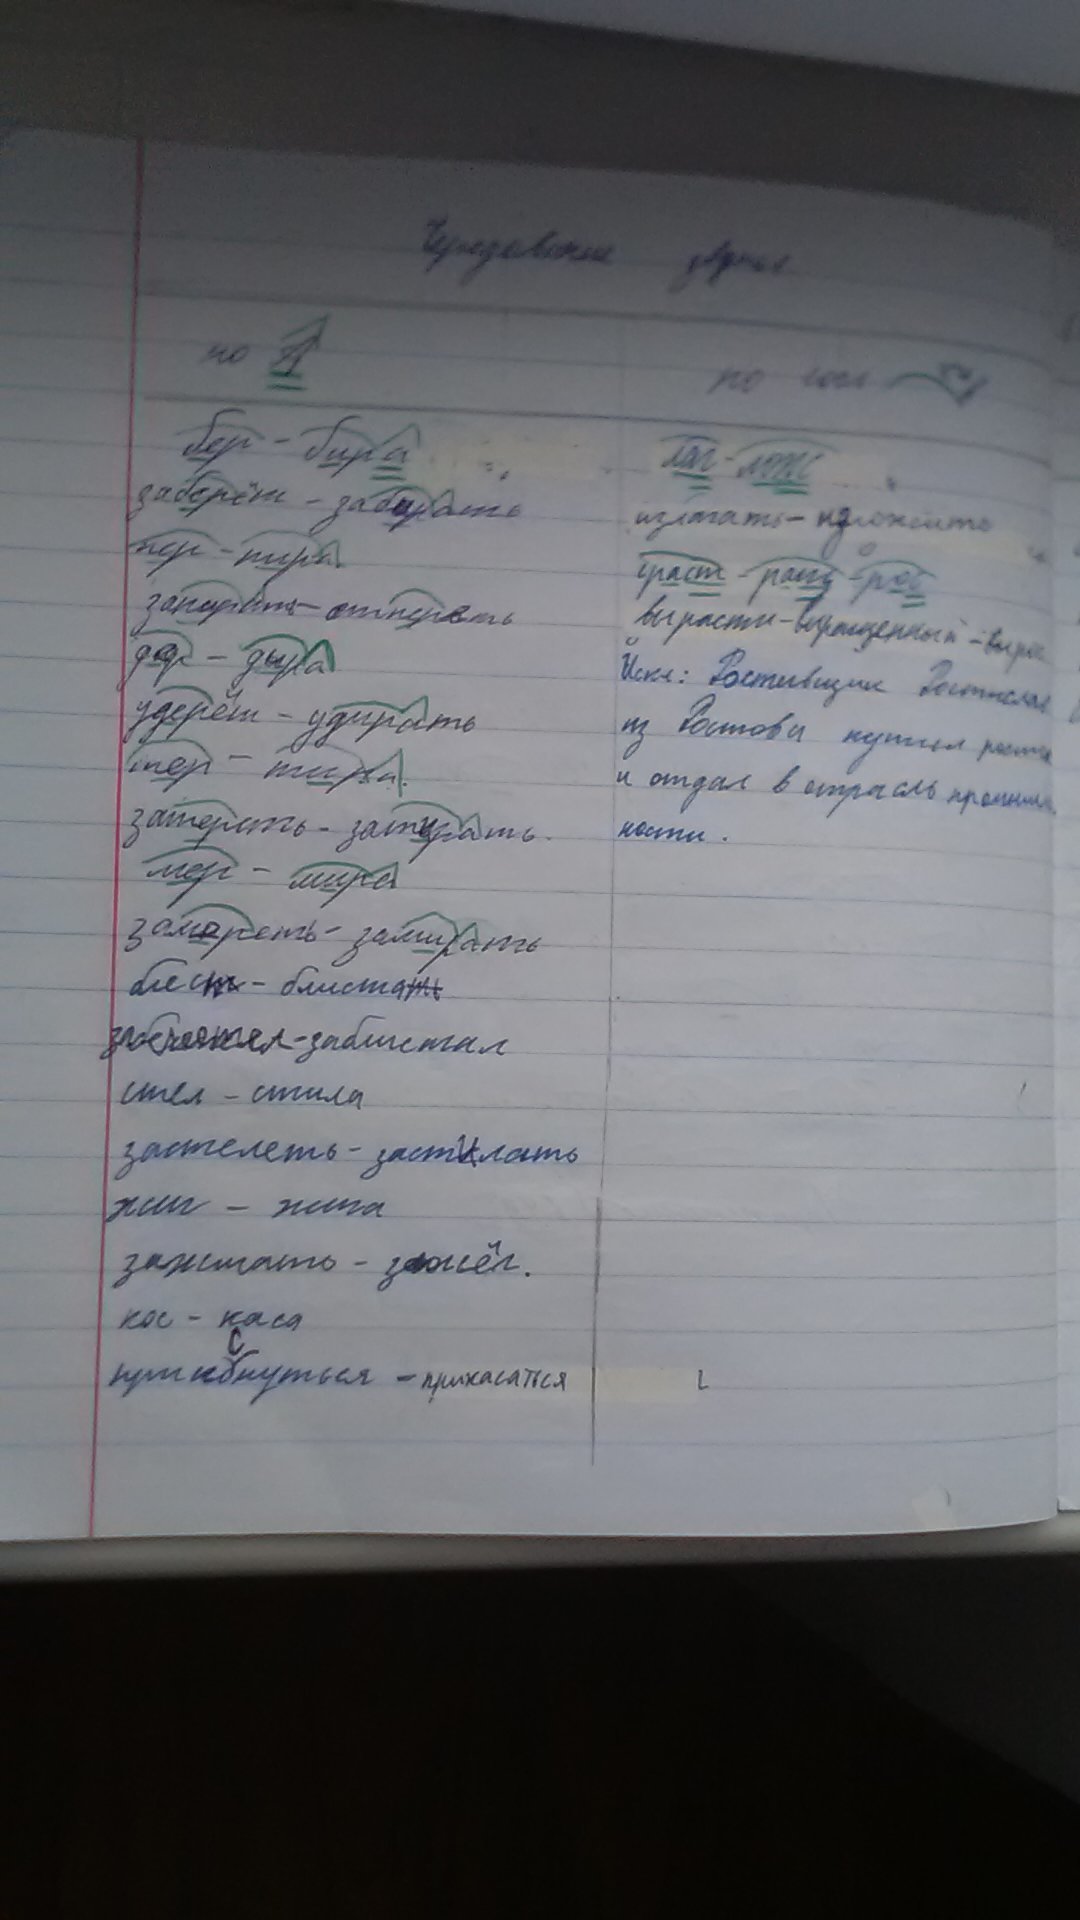 Чередование звуков
по А
бер - бира
заберёш - забирать
пер - пира
запирать - отпереть
дер - дыра
удерёш - удирать
тер - тира
затереть - затирать.
мер - мира
замереть - замирать
блест - блиста
заблестел - заблистал
стел - стила
застелеть - застилать
жиг - жига
зажигать - зажёг.
кос - каса
прикоснуться - прикасаться
по согл
лаг - лож
излагать - изложить
раст - ращ - рос
вырасти - выращенный - вырос
Искл: Ростовщик Ростислав
из Ростова купил росток
и отдал в отрасль промышлен
ности.